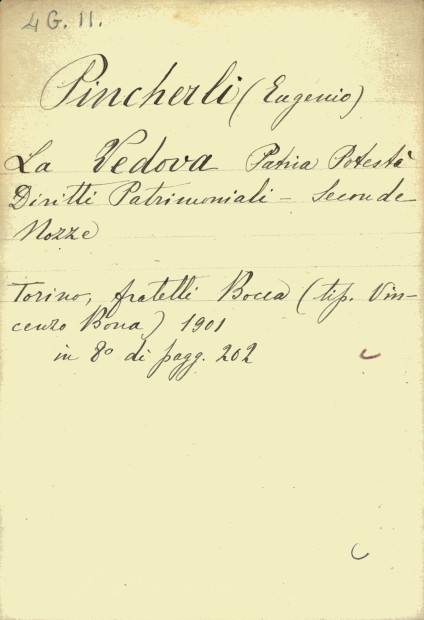 4 G. 11.
Pincherli (Eugenio)
La Vedova Patria Potestà
Diritti Patrimoniali - Seconde
Nozze
Torino, fratelli Bocca (tip. Vin-
cenzo Bona) 1901
in 8° di pagg. 202